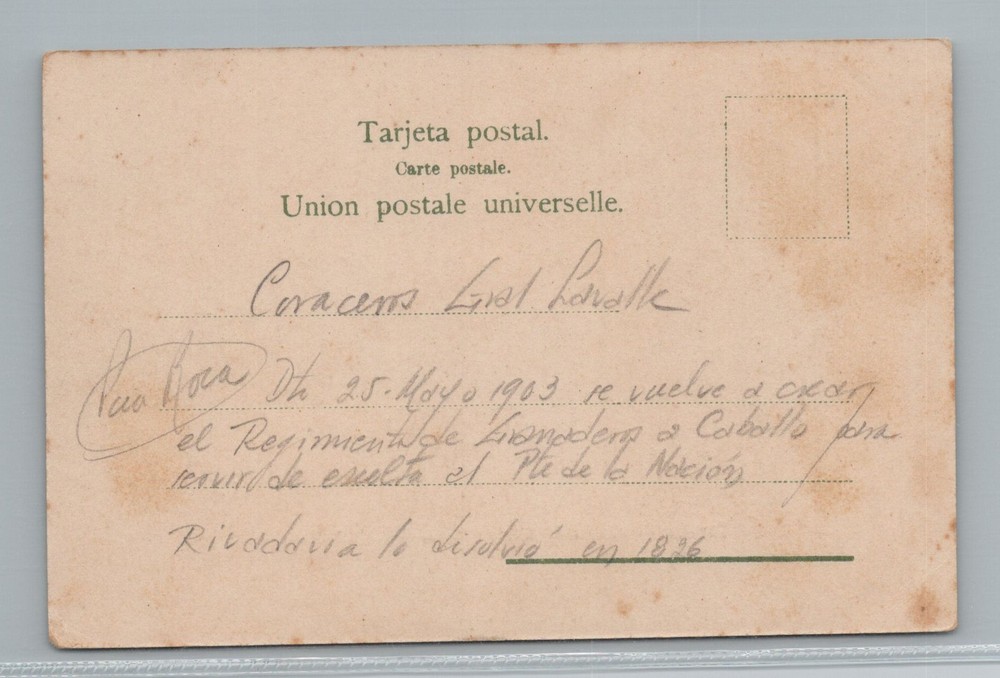 Tarjeta postal.
Carte postale.
Union postale universelle.
Coraceros Gral Lavalle
Roca
25-Mayo 1903 se vuelve a crear
el Regimiento de Granaderos a Caballo para
servir de escolta al Pte de la Nación
Rivadavia lo disolvió en 1826